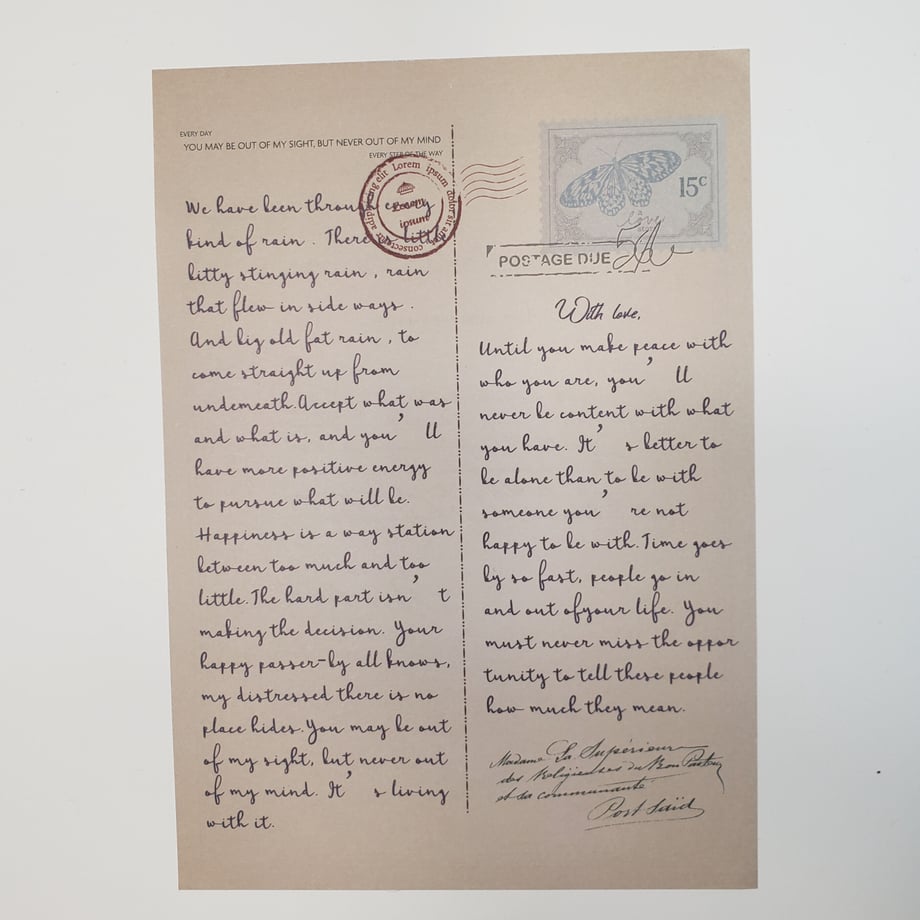 EVERY DAY
YOU MAY BE OUT OF MY SIGHT, BUT NEVER OUT OF MY MIND
EVERY STEP OF THE WAY
We have been through every
kind of rain . There little
bitty stinging rain , rain
that flew in side ways .
And big old fat rain , to
come straight up from
underneath.Accept what was
and what is, and you’ ll
have more positive energy
to pursue what will be.
Happiness is a way station
between too much and too
little.The hard part isn’ t
making the decision. Your
happy passer-by all knows,
my distressed there is no
place hides.You may be out
of my sight, but never out
of my mind. It’ s living
with it.
Lorem ipsum dolor sit amet consectetur adipiscing elit
Lorem
ipsum
15c
Love
POSTAGE DUE
With love,
Until you make peace with
who you are, you’ ll
never be content with what
you have. It’ s better to
be alone than to be with
someone you’ re not
happy to be with.Time goes
by so fast, people go in
and out ofyour life. You
must never miss the oppor
tunity to tell these people
how much they mean.
Madame La Supérieure
des Religieuses du Bon Pasteur
et sa communauté
Port Saïd